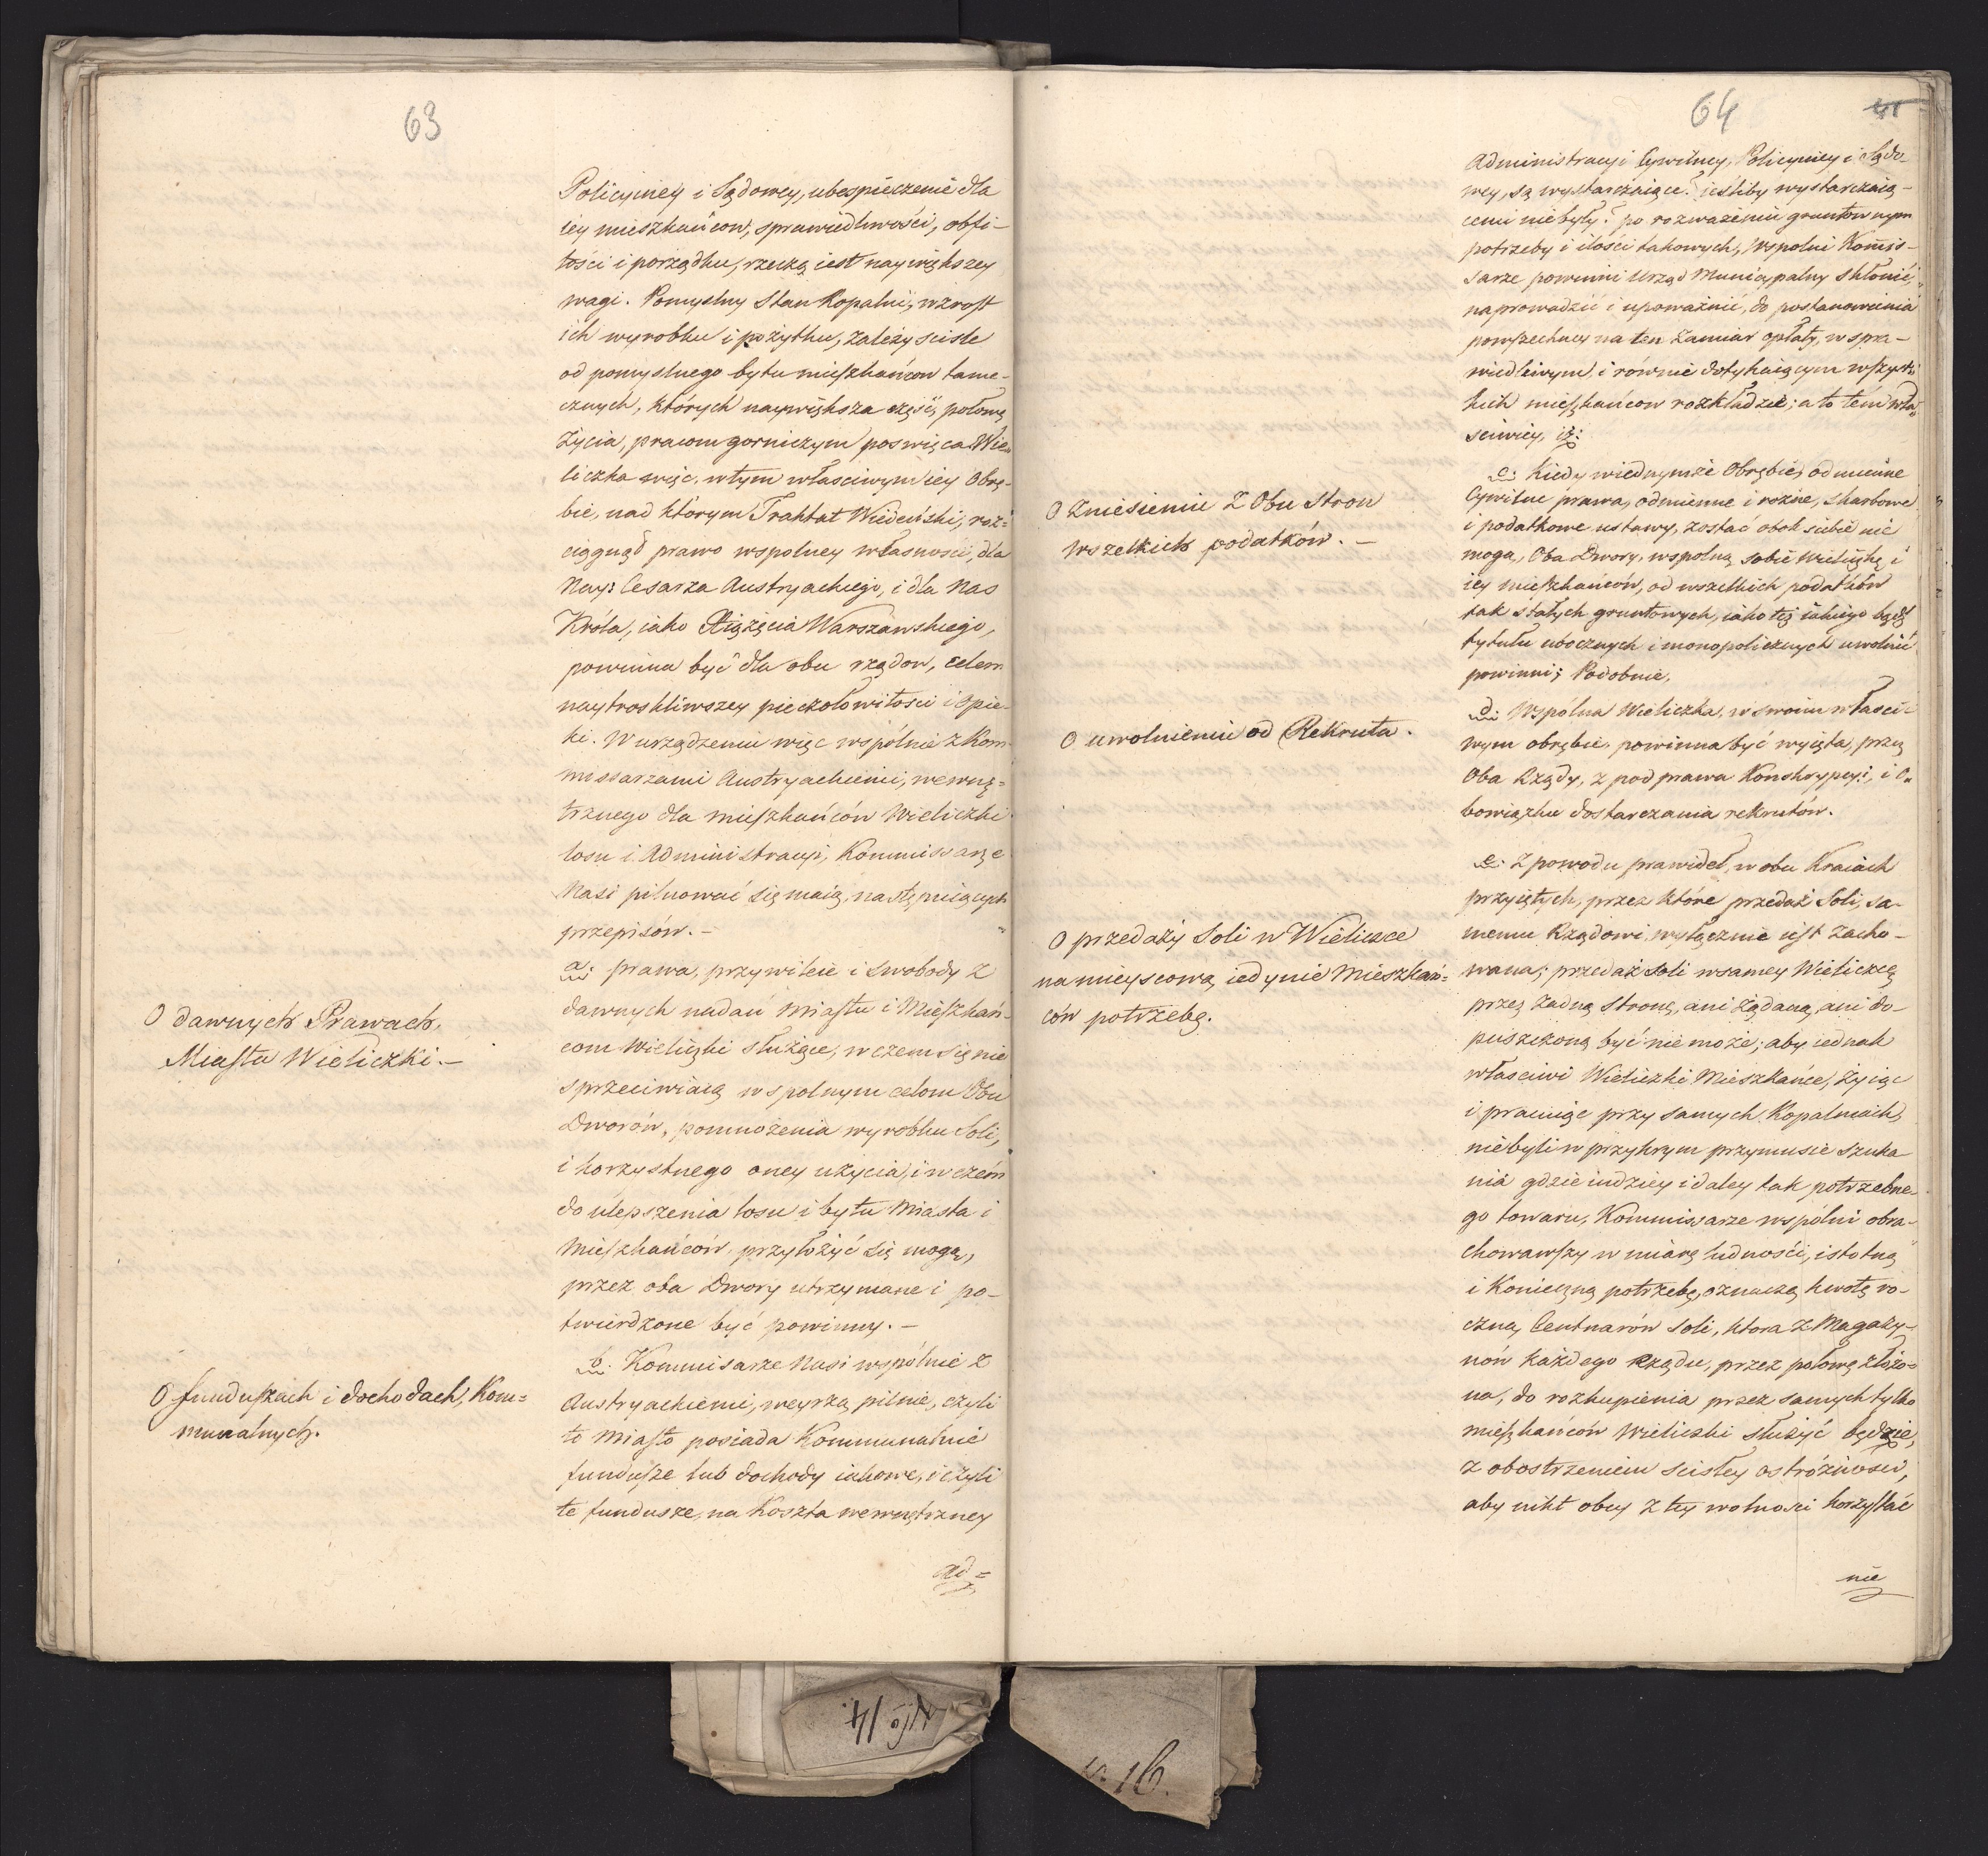 63
Policyiney i Sądowey, ubezpieczenie dla
iey mieszkańcow, sprawiedliwości, obfi-
tości i porządku, rzeczą iest naywiększey
wagi. Pomyslny Stan Kopalni, wzrost
ich wyrobku i pożytku, zależy sciśle
od pomyslnego bytu mieszkańcow tame-
cznych, których naywiększa część, połowę
życia, pracom gorniczym poswięca. Wie-
liczka więc, wtym własciwym iey Obrę-
bie, nad którym Traktat Wiedeński, roz-
ciągnął prawo wspolney własności, dla
Nay: Cesarza Austryackiego, i dla Nas
Króla, iako Xiążęcia Warszawskiego,
powinna być dla obu rządow, celem
naytroskliwszey pieczołowitości i opie-
ki. W urządzeniu więc wspólnie z Kom-
missarzami Austryackiemi, wewnę-
trznego dla mieszkańców Wieliczki
losu i Administracyi, Kommissarze
Nasi pilnować się maią, następuiących
przepisów. -
O dawnych Prawach
Miasta Wieliczki. -
a: prawa, przywileie i swobody z
dawnych nadań Miastu i Mieszkań-
com Wieliczki służące, w czem się nie
sprzeciwiaią wspolnym celom Obu
Dworów, pomnożenia wyrobku Soli,
i korzystnego oney użycia, i w czem
do ulepszenia losu i bytu Miasta i
Mieszkańców przyłożyć się mogą,
przez oba Dwory utrzymane i po-
twierdzone być powinny. -
O funduszach i dochodach Kom-
munalnych.
b. Kommisarze Nasi wspólnie z
Austryackiemi, weyrzą pilnie, czyli
to Miasto posiada Kommunalnie
fundusze lub dochody iakowe, i czyli
te fundusze, na Koszta wewnętrzney
ad=
64
Administracyi Cywilney, Policyiney i Sądo-
wey, są wystarczaiące? ieśliby wystarczaią-
cemi nie były? po rozważeniu gruntownym
potrzeby i ilości takowych, Wspolni Kommis-
sarze powinni Urząd Municypalny skłonić,
naprowadzić i upoważnić, do postanowienia
powszechney na ten zamiar opłaty, w spra-
wiedliwym i równie dotykaiącym wszyst-
kich mieszkańcow rozkładzie; a to tem wła-
sciwiey, iż:
O Zniesieniu z Obu Stron
wszelkich podatków. -
c: Kiedy wiednymże Obrębie, odmienne
Cywilne prawa, odmienne i rozne, skarbowe
i podatkowe ustawy, zostać obok siebie nie
mogą, Oba Dwory, wspolną sobie Wieliczkę i
iey Mieszkańców, od wszelkich podatków
tak stałych gruntowych, iako też iakiego bądź
tytułu ubocznych i monopolicznych uwolnić
powinni; Podobnie,
O uwolnieniu od Rekruta.
d: Wspólna Wieliczka, w swoim własci-
wym obrębie, powinna być wyięta, przez
Oba Rządy, z pod prawa Konskrypcyi, i O-
bowiązku dostarczania rekrutów.
O przedaży Soli w Wieliczce
na mieyscową iedynie Mieszkań-
ców potrzebę.
e: Z powodu prawideł, w obu Kraiach
przyiętych, przez które przedaż Soli, sa-
memu Rządowi, wyłącznie iest zacho-
wana; przedaż Soli w samey Wieliczce
przez żadną stronę, ani żądaną, ani do-
puszczoną być nie może; aby iednak
właściwi Wieliczki Mieszkańce, żyiąc
i pracuiąc przy samych Kopalniach,
nie byli w przykrym przymusie szuka-
nia gdzieindziey i daley tak potrzebne-
go towaru, Kommissarze wspólni obra-
chowawszy w miarę ludności, istotną
i Konieczną potrzebę, oznaczą kwotę ro-
czney Centnarów Soli, ktora z Magazy-
nów każdego Rządu, przez połowę złożo-
na, do rozkupienia przez samych tylko
mieszkańców Wieliczki służyć będzie,
z obostrzeniem scisłey ostróżności,
aby nikt obcy z tey wolności korzystać
nie
No 14.
16.